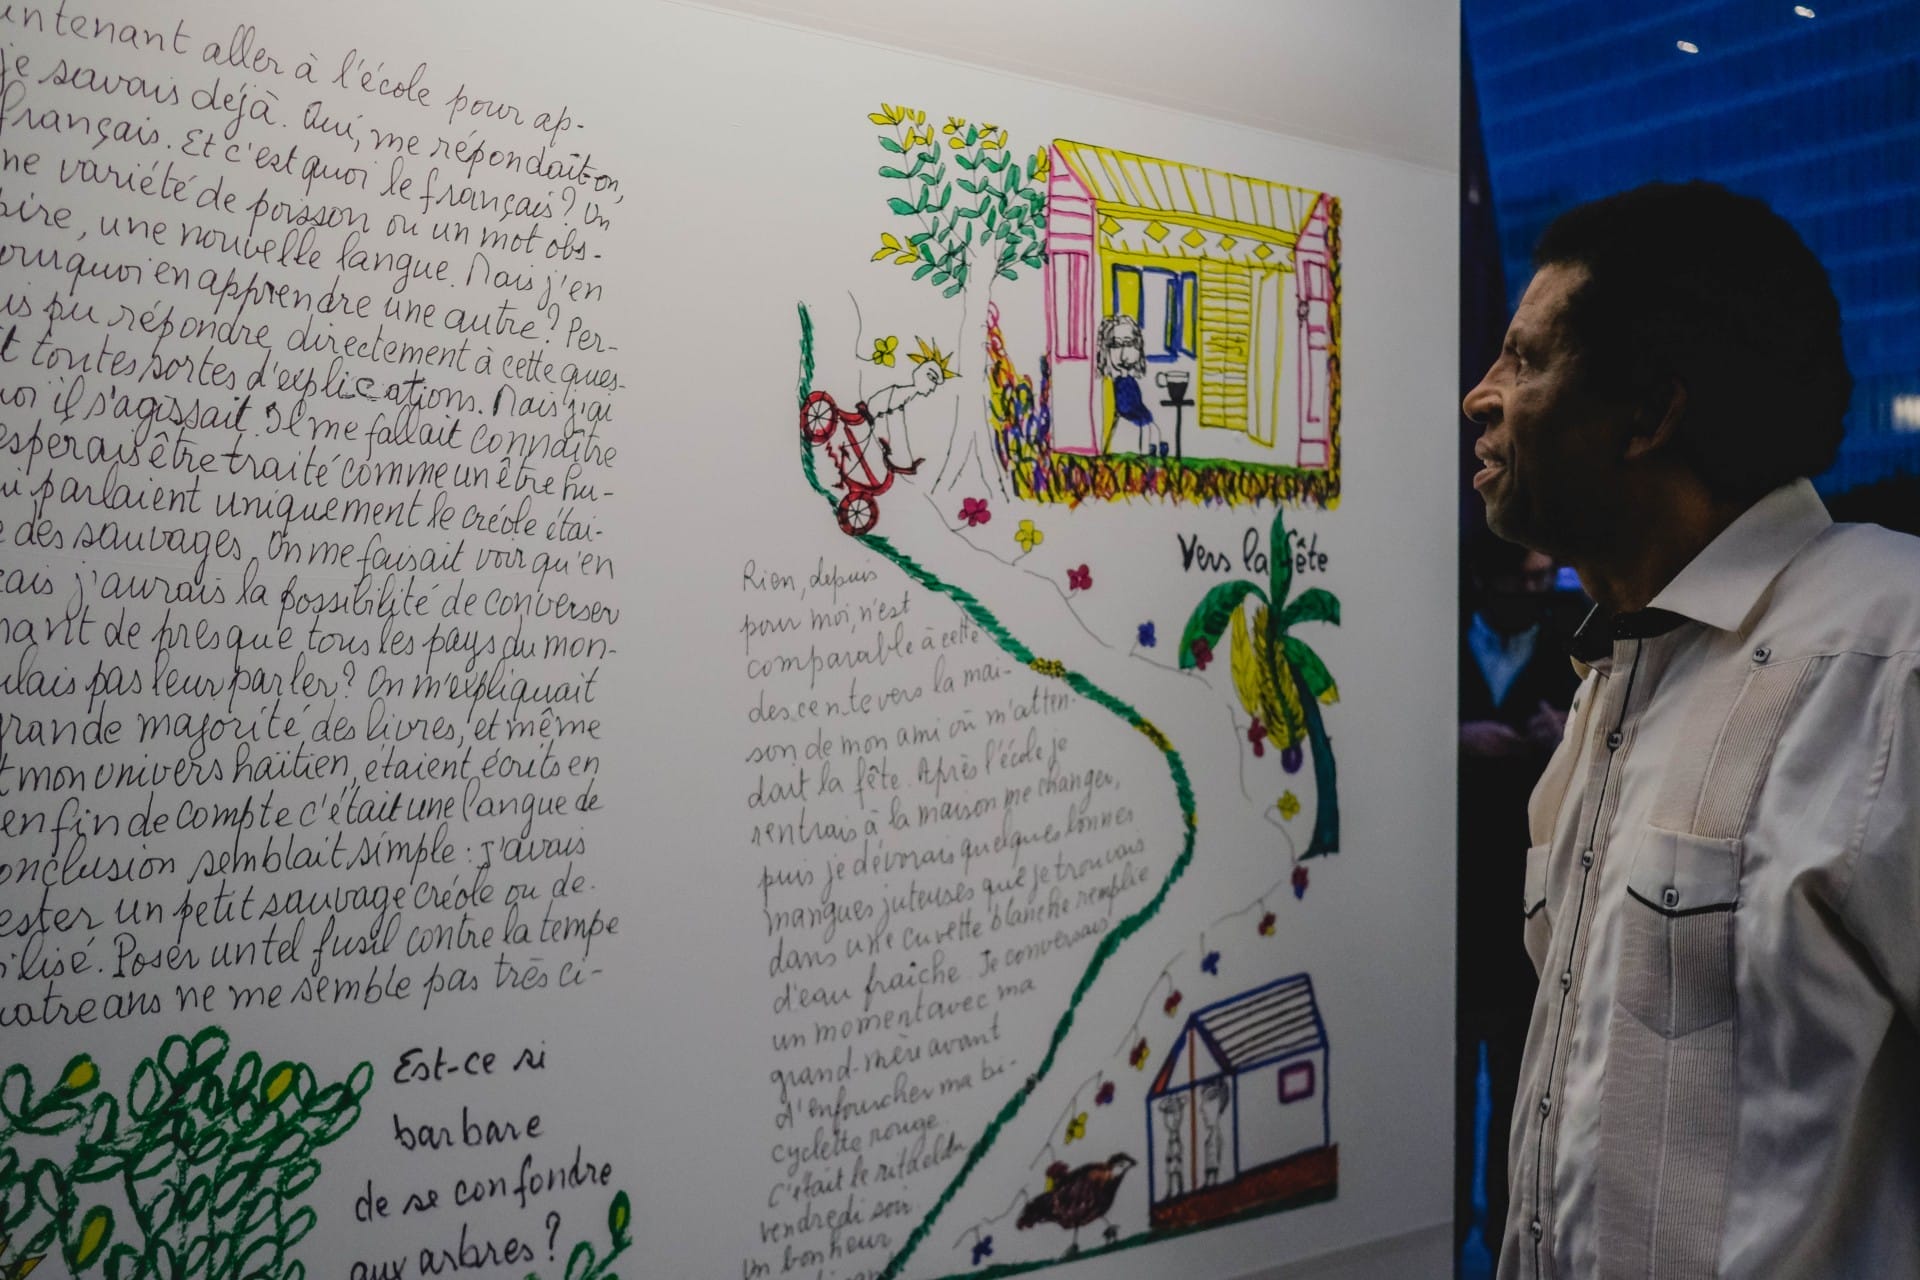 intenant aller à l'école pour ap-
je savais déjà. Oui, me répondait-on,
français. Et c'est quoi le français? Un
ne variété de poisson ou un mot obs-
oire, une nouvelle langue. Mais j'en
ourquoi en apprendre une autre? Per-
is pu répondre directement à cette ques-
t toutes sortes d'explications. Mais j'ai
uoi il s'agissait. Il me fallait connaître
esperais être traité comme un être hu-
ui parlaient uniquement le créole étai-
e des sauvages. On me faisait voir qu'en
çais j'aurais la possibilité de converser
nant de presque tous les pays du mon-
ulais pas leur parler? On m'expliquait
grande majorité des livres, et même
t mon univers haïtien, étaient écrits en
en fin de compte c'était une langue de
onclusion semblait simple: j'avais
ester un petit sauvage créole ou de
ilisé. Poser un tel fusil contre la tempe
uatre ans ne me semble pas très ci-
Est-ce si
barbare
de se confondre
aux arbres?
Vers la fête
Rien, depuis
pour moi, n'est
comparable à cette
descente vers la mai-
son de mon ami où m'atten-
dait la fête. Après l'école je
rentrais à la maison me changer,
puis je dévorais quelques bonnes
mangues juteuses que je trouvais
dans une cuvette blanche remplie
d'eau fraîche. Je conversais
un moment avec ma
grand-mère avant
d'enfourcher ma bi-
cyclette rouge.
C'était le rituel du
vendredi soir.
Un bonheur